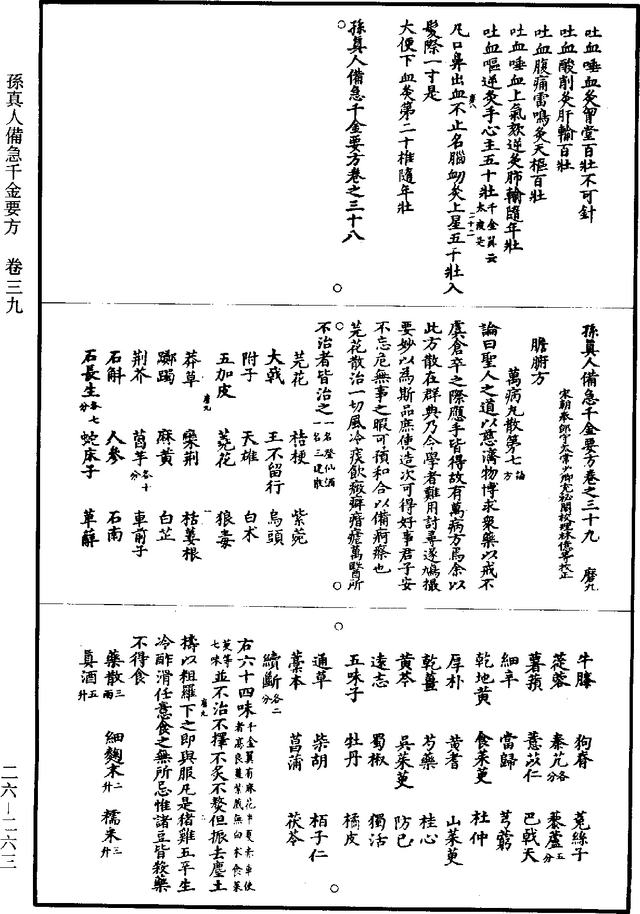 孫真人備急千金要方　卷三九
吐血唾血灸胷堂百壯不可針
吐血酸削灸肝輸百壯
吐血腹痛雷鳴灸天樞百壯
吐血唾血上氣欬逆灸肺輸隨年壯
吐血嘔逆灸手心主五十壯千金翼云太陵是
凡口鼻出血不止名腦衄灸上星五十壯入
髮際一寸是
大便下血灸第二十椎隨年壯
孫真人備急千金要方卷之三十八
孫真人備急千金要方卷之三十九　磨九
宋朝奉郎守太常少卿充秘閣校理林億等校正
膽腑方
萬病丸散第七論方
論曰聖人之道以慈濟物博求衆藥以戒不
虞倉卒之際應手皆得故有萬病方焉余以
此方散在群典乃令學者難用討尋遂鳩撮
要妙以為斯品庶使造次可得好事君子安
不忘危無事之暇可預和合以備痾瘵也
芫花散治一切風冷痰飲癥癖痞瘧萬醫所
不治者皆治之一名登仙酒一名三建散
芫花　桔梗　紫菀
大戟　王不留行　烏頭
附子　天雄　白术
五加皮　蕘花　狼毒
莽草　欒荊　栝蔞根
躑躅　麻黄　白芷
荊芥　茵芋各十分　車前子
石斛　人參　石南
石長生各七分　蛇床子　萆薢
牛膝　狗脊　菟絲子
蓯蓉　秦艽各分　藜蘆五分
薯蕷　薏苡仁　巴戟天
細辛　當歸　芎藭
乾地黄　食茱萸　杜仲
厚朴　黄耆　山茱萸
乾薑　芍藥　桂心
黄芩　吳茱萸　防已
遠志　蜀椒　獨活
五味子　牡丹　橘皮
通草　柴胡　栢子仁
藁本　菖蒲　茯苓
續斷各二分
右六十四味千金翼有麻花半夏赤車使者高良薑紫葳無白术食茱萸等七味並不治不擇不炙不熬但振去塵土
擣以粗羅下之即與服凡是猪雞五辛生
冷酢滑任意食之無所忌惟諸豆皆殺藥
不得食
藥散三兩　細麴末二升　糯米三升
真酒五升
二六—二六三